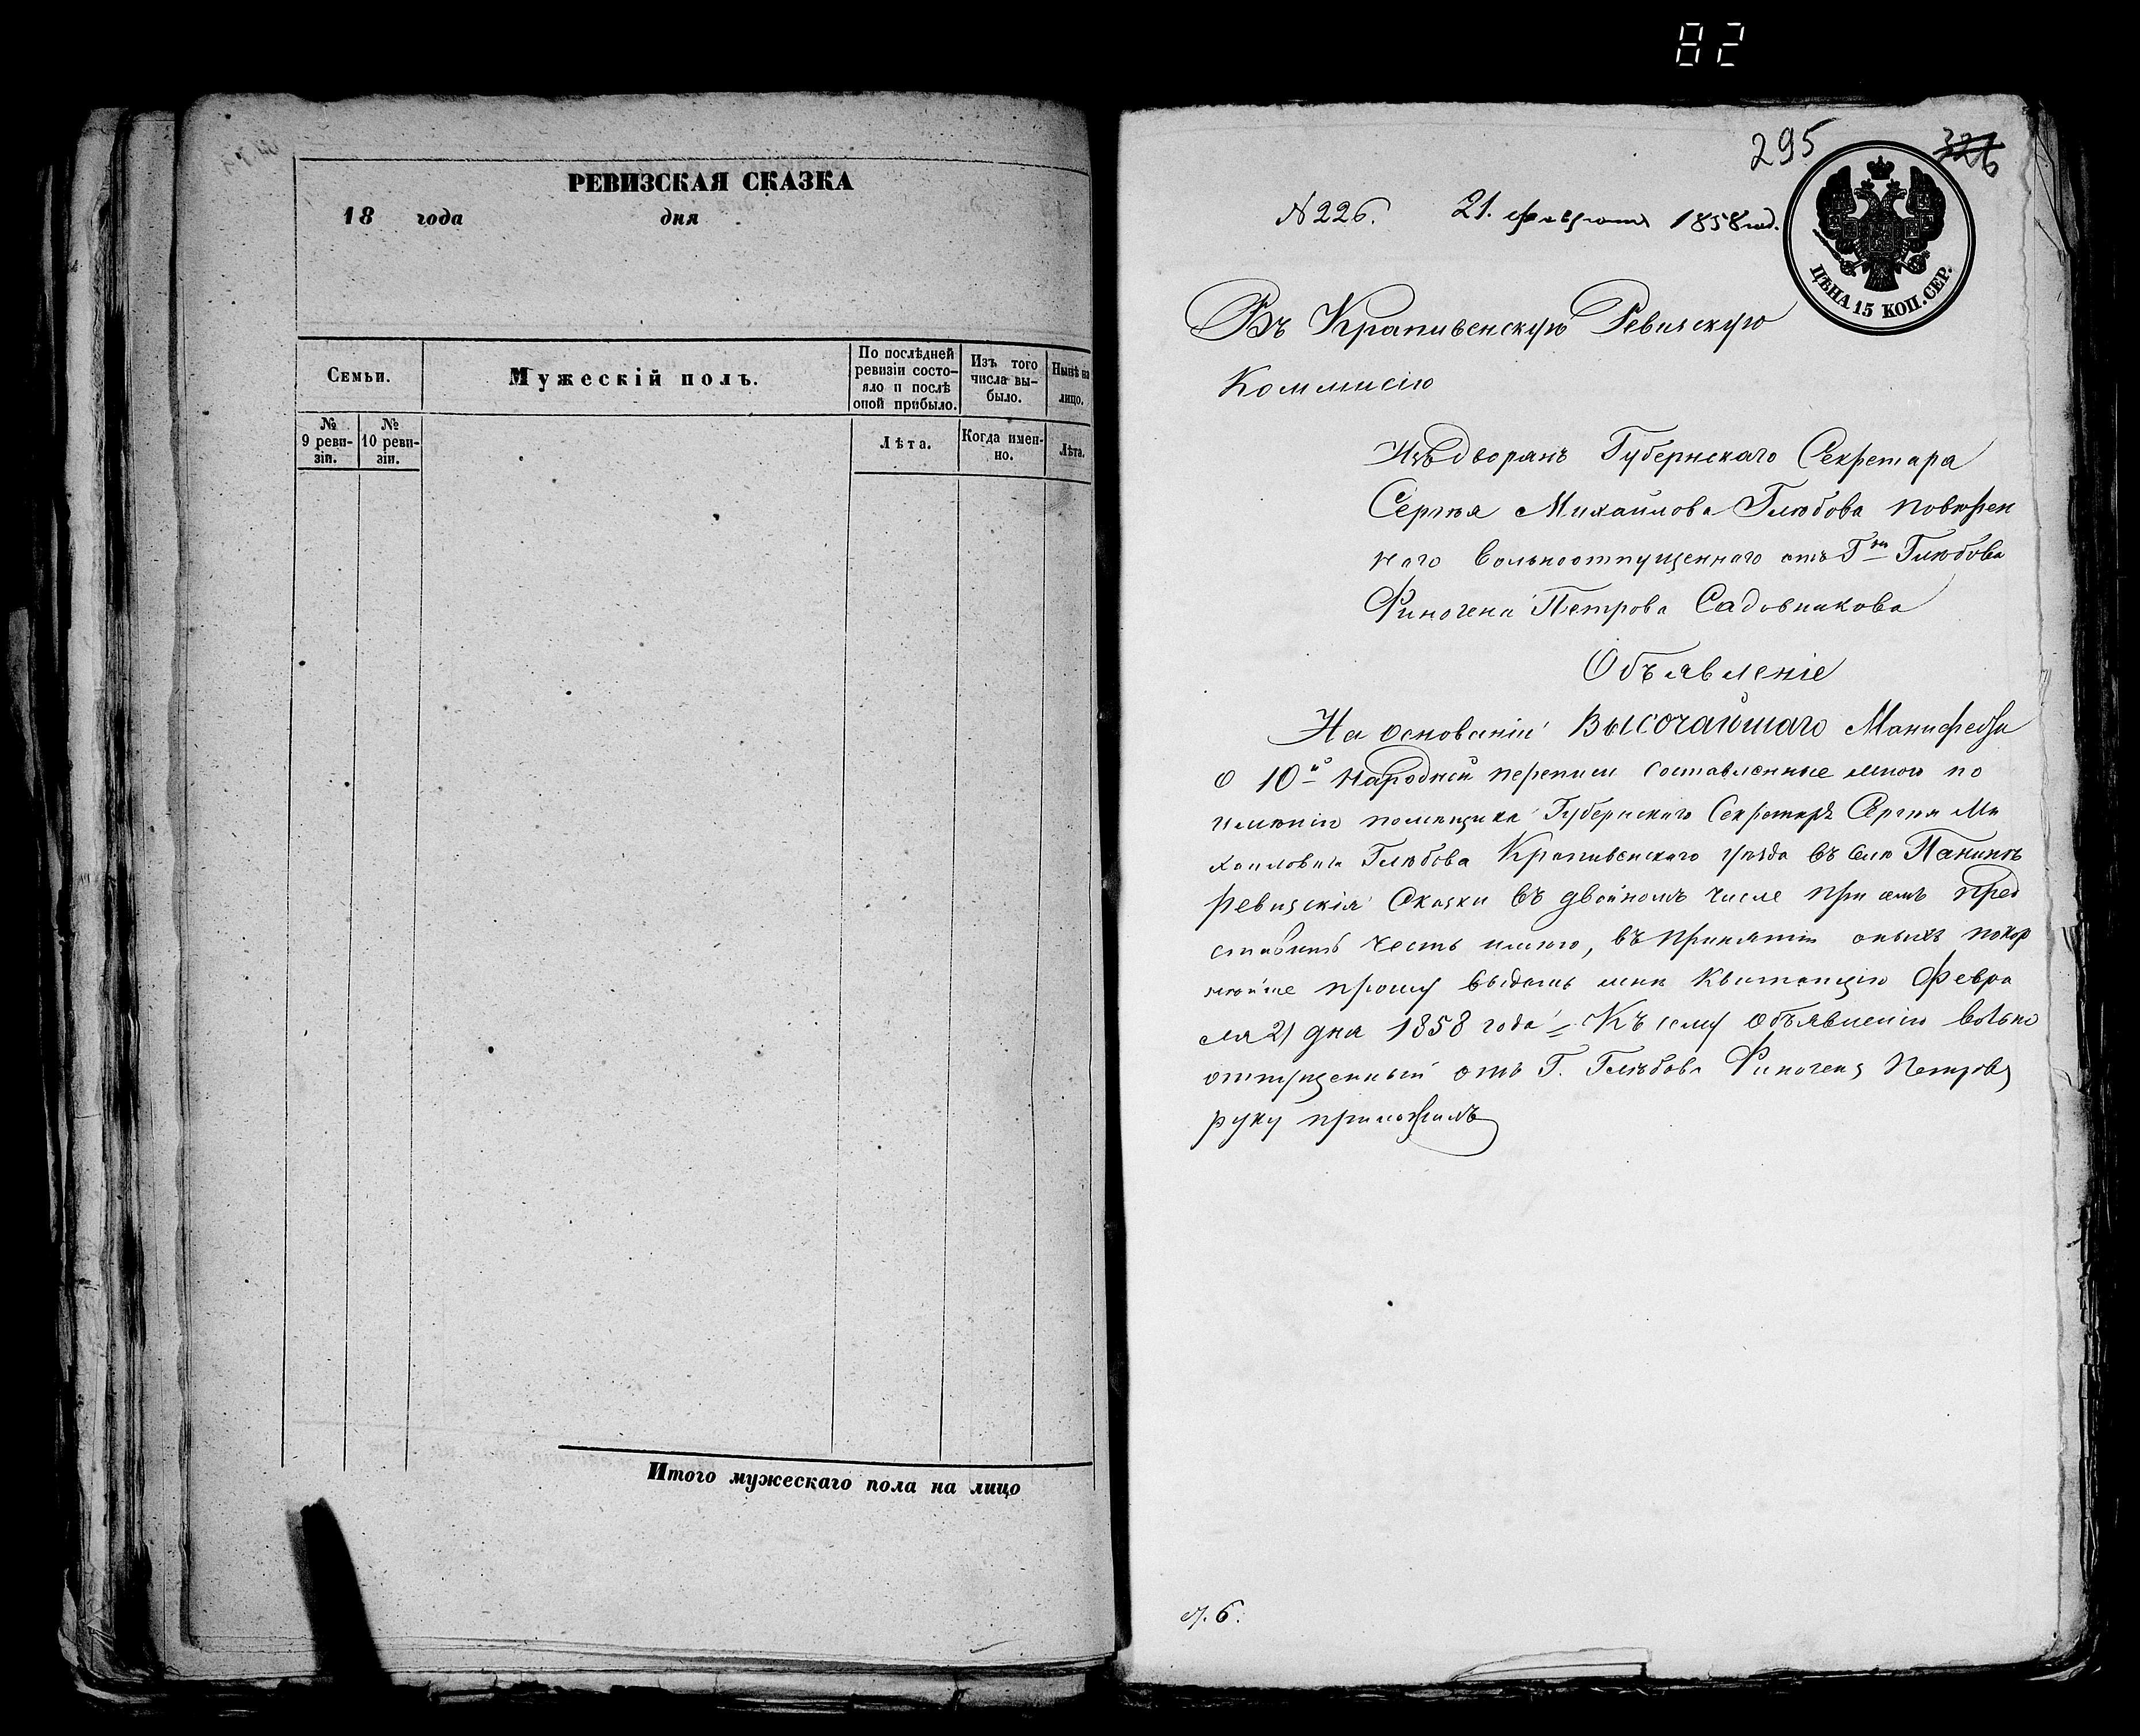 82
РЕВИЗСКАЯ СКАЗКА
18 года дня
Семьи.
Мужескій полъ.
По послѣдней ревизіи состояло и послѣ оной прибыло.
Изъ того числа выбыло.
Нынѣ на лицо.
№ 9 ревизіи.
№ 10 ревизіи.
Лѣта.
Когда именно.
Лѣта.
Итого мужескаго пола на лицо
295 326
ЦѢНА 15 КОП. СЕР.
№ 226. 21. февраля 1858 год.
Въ Крапивенскую Ревизскую
Коммисію
Изъ дворянъ Губернскаго Секретаря
Сергѣя Михайлова Глѣбова повѣрен
наго вольноотпущеннаго отъ Гна Глѣбова
Финогена Петрова Садовникова
Объявленіе
На основаніи Высочайшаго Манифеста
о 10й народной переписи составленные мною по
имѣнію помещика Губернскаго Секретаря Сергѣя Ми
хаиловича Глѣбова Крапивенскаго уѣзда въ селѣ Панинѣ
ревизскія Сказки въ двойномъ числе при семъ пред
ставить честь имѣю, въ принятіи оныхъ покор
нѣйше прошу выдать мнѣ Квитанцію Февра
ля 21 дня 1858 года Къ сему объявленію вольно
отпущенный отъ Г. Глѣбова Финогенъ Петровъ
руку приложилъ